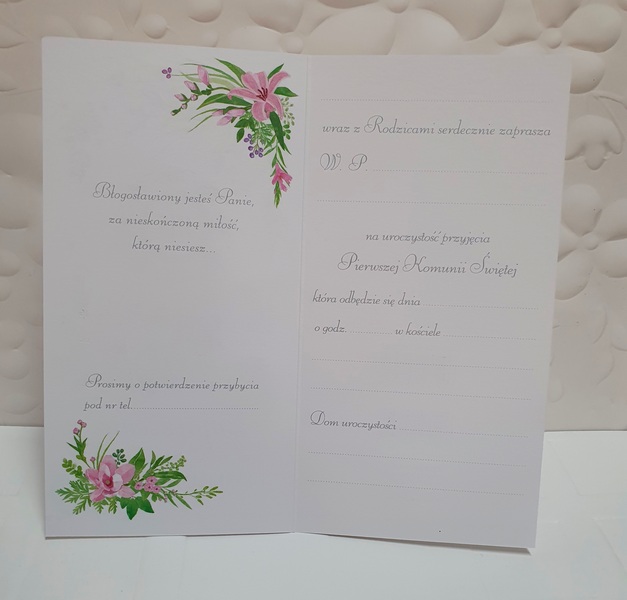 Błogosławiony jesteś Panie,
za nieskończoną miłość,
którą niesiesz...
Prosimy o potwierdzenie przybycia
pod nr tel.
wraz z Rodzicami serdecznie zaprasza
W. P.
na uroczystość przyjęcia
Pierwszej Komunii Świętej
która odbędzie się dnia
o godz. w kościele
Dom uroczystości